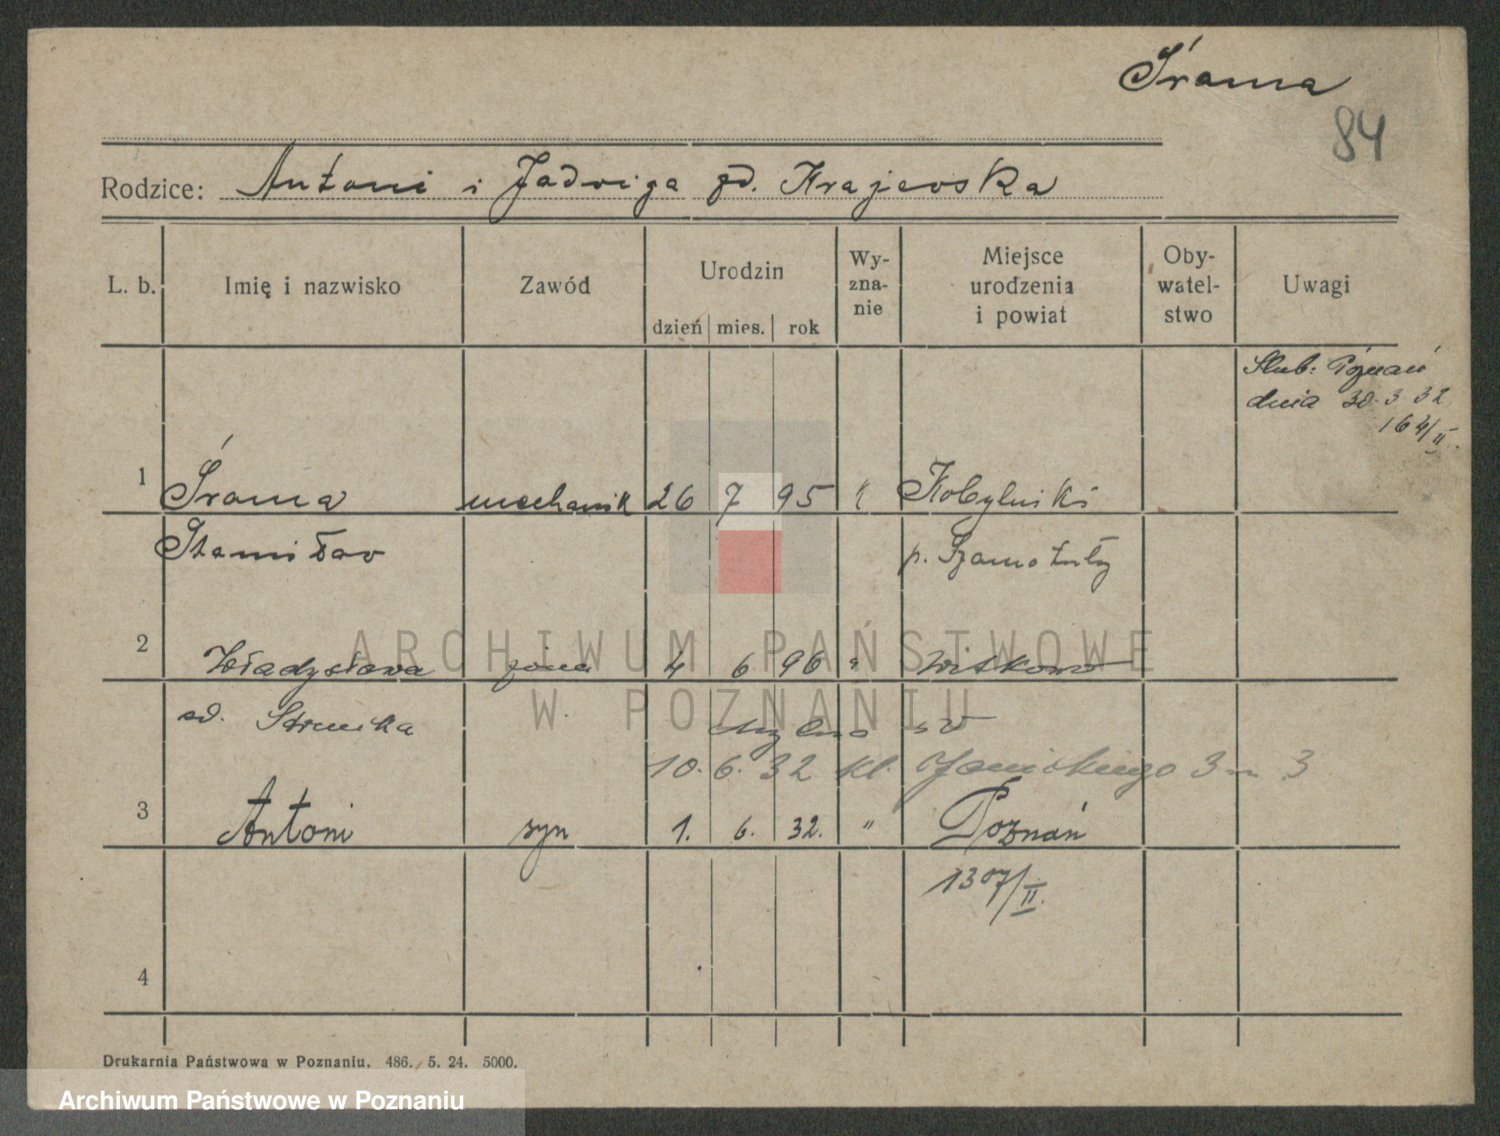 Śrama
84
Rodzice: Antoni i Jadwiga zd. Krajewska
L. b. Imię i nazwisko Zawód Urodzin dzień mies. rok Wy-zna-nie Miejsce urodzenia i powiat Oby-watel-stwo Uwagi
Ślub: Poznań
dnia 30. 3 32
164/II.
1 Śrama mechanik 26 7 95 " Kobylniki
Stanisław p. Szamotuły
2 Władysława żona 4 6 96 " Witkowo
zd.
10. 6. 32 kl. Janickiego 3 m 3
3 Antoni syn 1. 6. 32. " Poznań
1307/II.
4
Drukarnia Państwowa w Poznaniu. 486. 5. 24. 5000.
ARCHIWUM PAŃSTWOWE
W POZNANIU
Archiwum Państwowe w Poznaniu